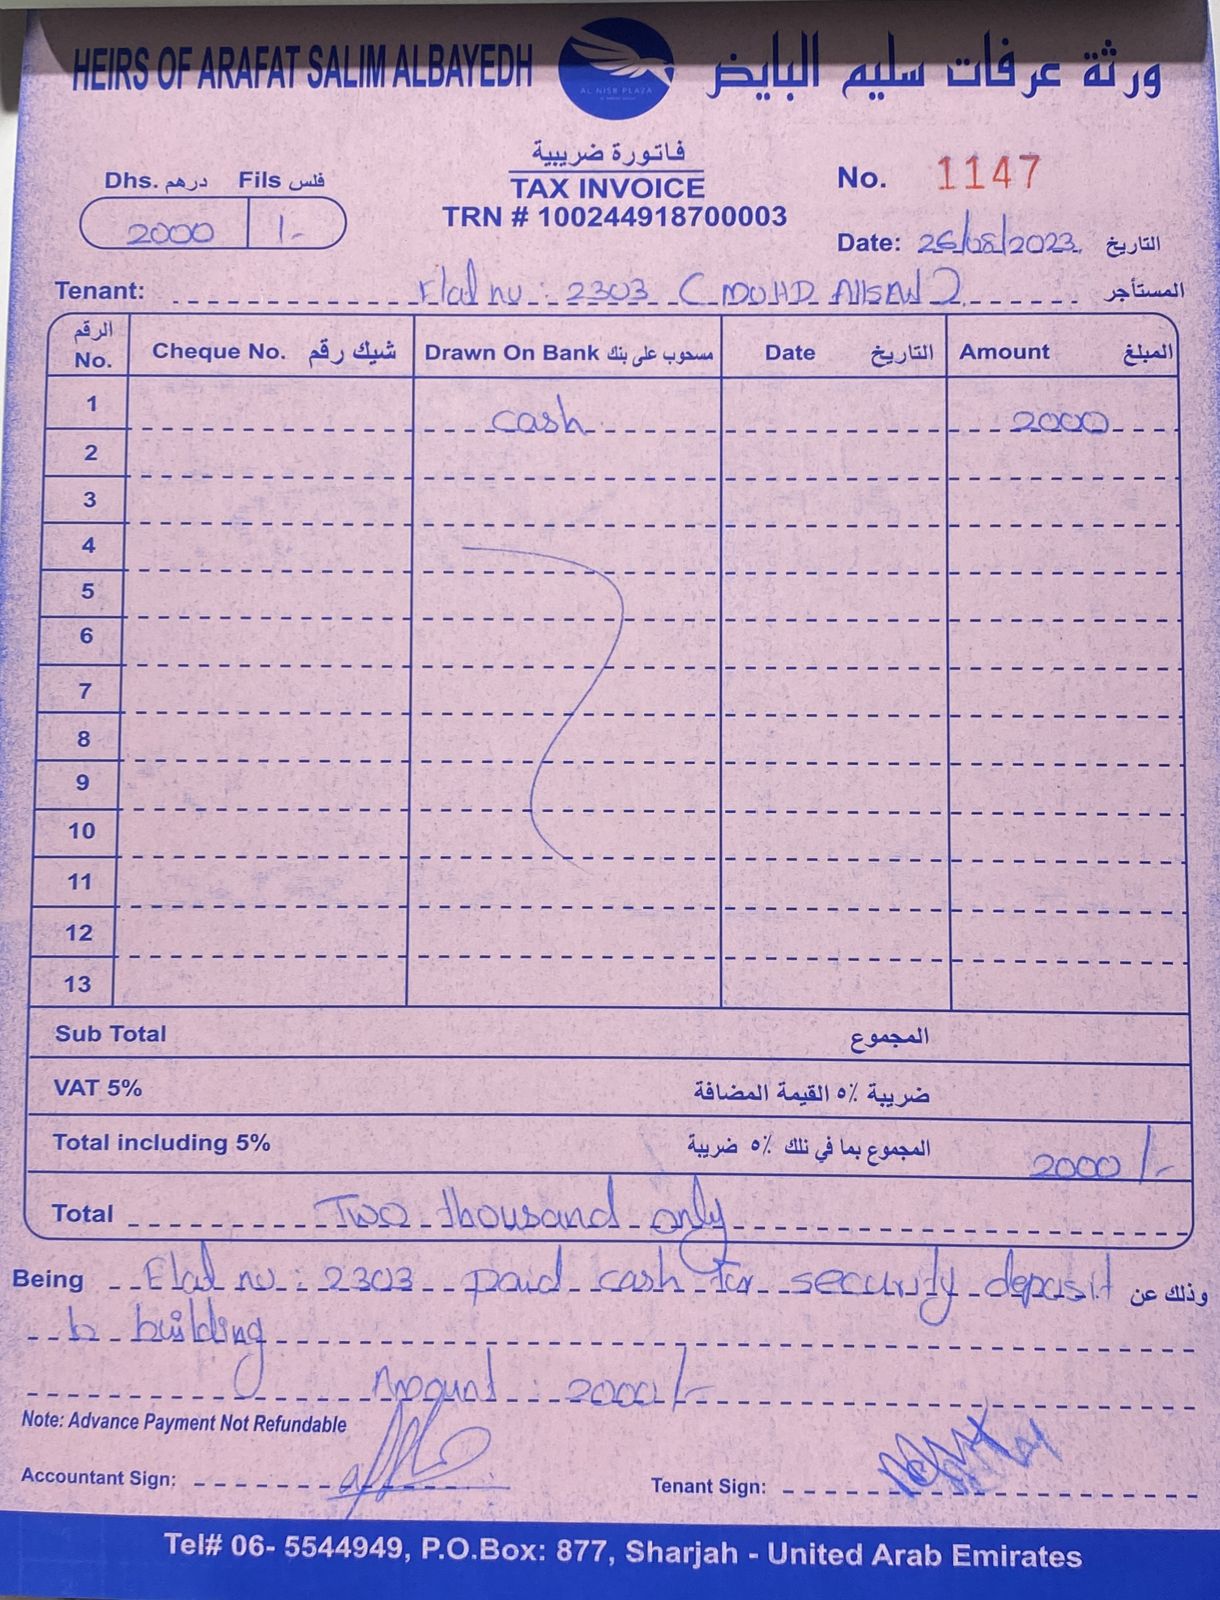 HEIRS OF ARAFAT SALIM ALBAYEDH
ورثة عرفات سليم البايض
AL NISR PLAZA
فاتورة ضريبية
TAX INVOICE
TRN # 100244918700003
Dhs. درهم Fils فلس
2000 /-
No. 1147
Date: 26/08/2023 التاريخ
Tenant: Flat no : 2303 ( MOHD AHSAN ) المستأجر
الرقم No. Cheque No. شيك رقم Drawn On Bank مسحوب على بنك Date التاريخ Amount المبلغ
1 cash 2000
2
3
4
5
6
7
8
9
10
11
12
13
Sub Total المجموع
VAT 5% ضريبة ٥٪ القيمة المضافة
Total including 5% المجموع بما في ذلك ٥٪ ضريبة 2000 /-
Total Two thousand only
Being Flat no : 2303 paid cash for security deposit وذلك عن
b building
Amount : 2000/-
Note: Advance Payment Not Refundable
Accountant Sign: Tenant Sign:
Tel# 06- 5544949, P.O.Box: 877, Sharjah - United Arab Emirates